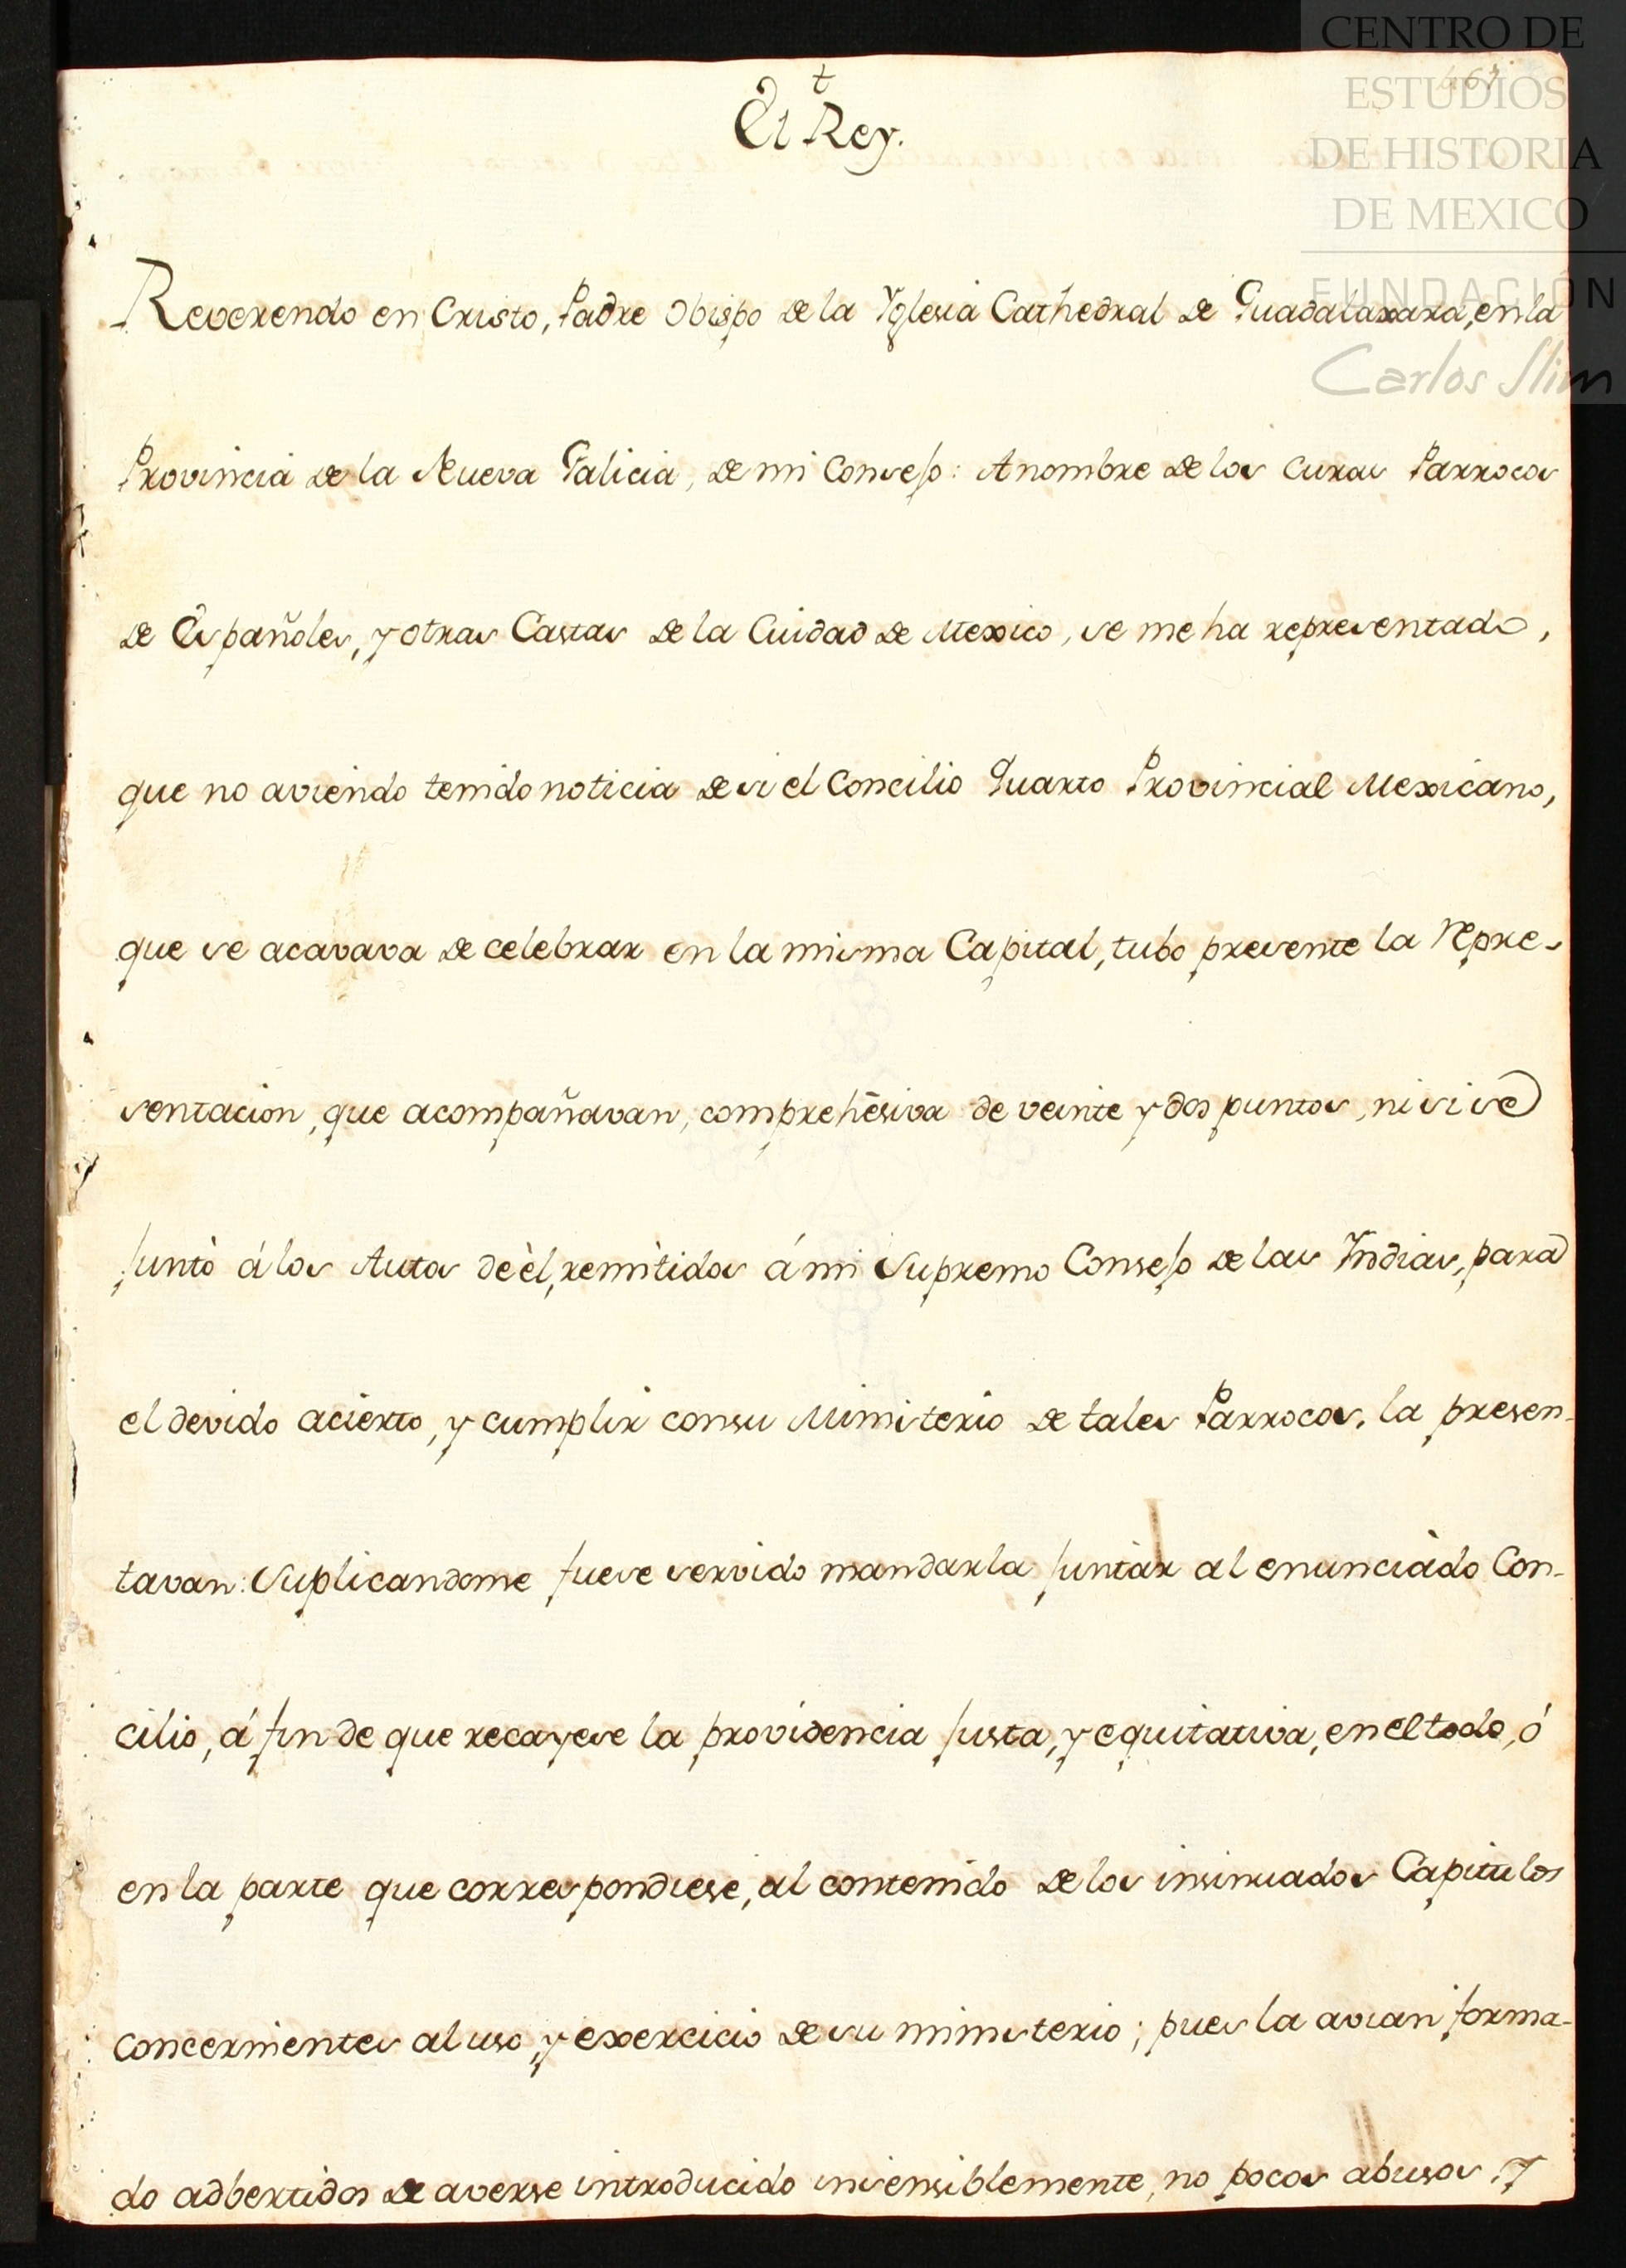 †
El Rey.
CENTRO DE
ESTUDIOS
DE HISTORIA
DE MEXICO
FUNDACIÓN
Carlos Slim
Reverendo en Cristo, Padre Obispo de la Yglesia Cathedral de Guadalaxara, en la
Provincia de la Nueva Galicia, de mi Consejo: A nombre de los Curas Parrocos
de Españoles, y otras Castas de la Cuidad de Mexico, se me ha representado,
que no aviendo tenido noticia de si el Concilio Quarto Provincial Mexicano,
que se acavava de celebrar en la misma Capital, tubo presente la repre-
sentacion, que acompañavan, comprehēsiva de veinte y dos puntos, ni si se
juntò á los Autos de èl, remitidos á mi Supremo Consejo de las Yndias, para
el devido acierto, y cumplir con su Ministerio de tales Parrocos, la presen-
tavan: Suplicandome fuese servido mandarla juntàr al enunciado Con-
cilio, á fin de que recayese la providencia justa, y equitativa, en el todo, ó
en la parte que correspondiese, al contenido de los insinuados Capitulos
concernientes al uso, y exercicio de su ministerio; pues la avian forma-
do adbertidos de averse introducido insensiblemente, no pocos abusos, y